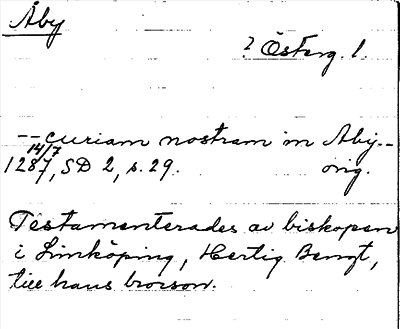 Åby
? Österg. l.
-- curiam nostram in Aby --
14/7
1287, SD 2, s. 29. orig.
Testamenterades av biskopen
i Linköping, Hertig Bengt,
till hans brorson.